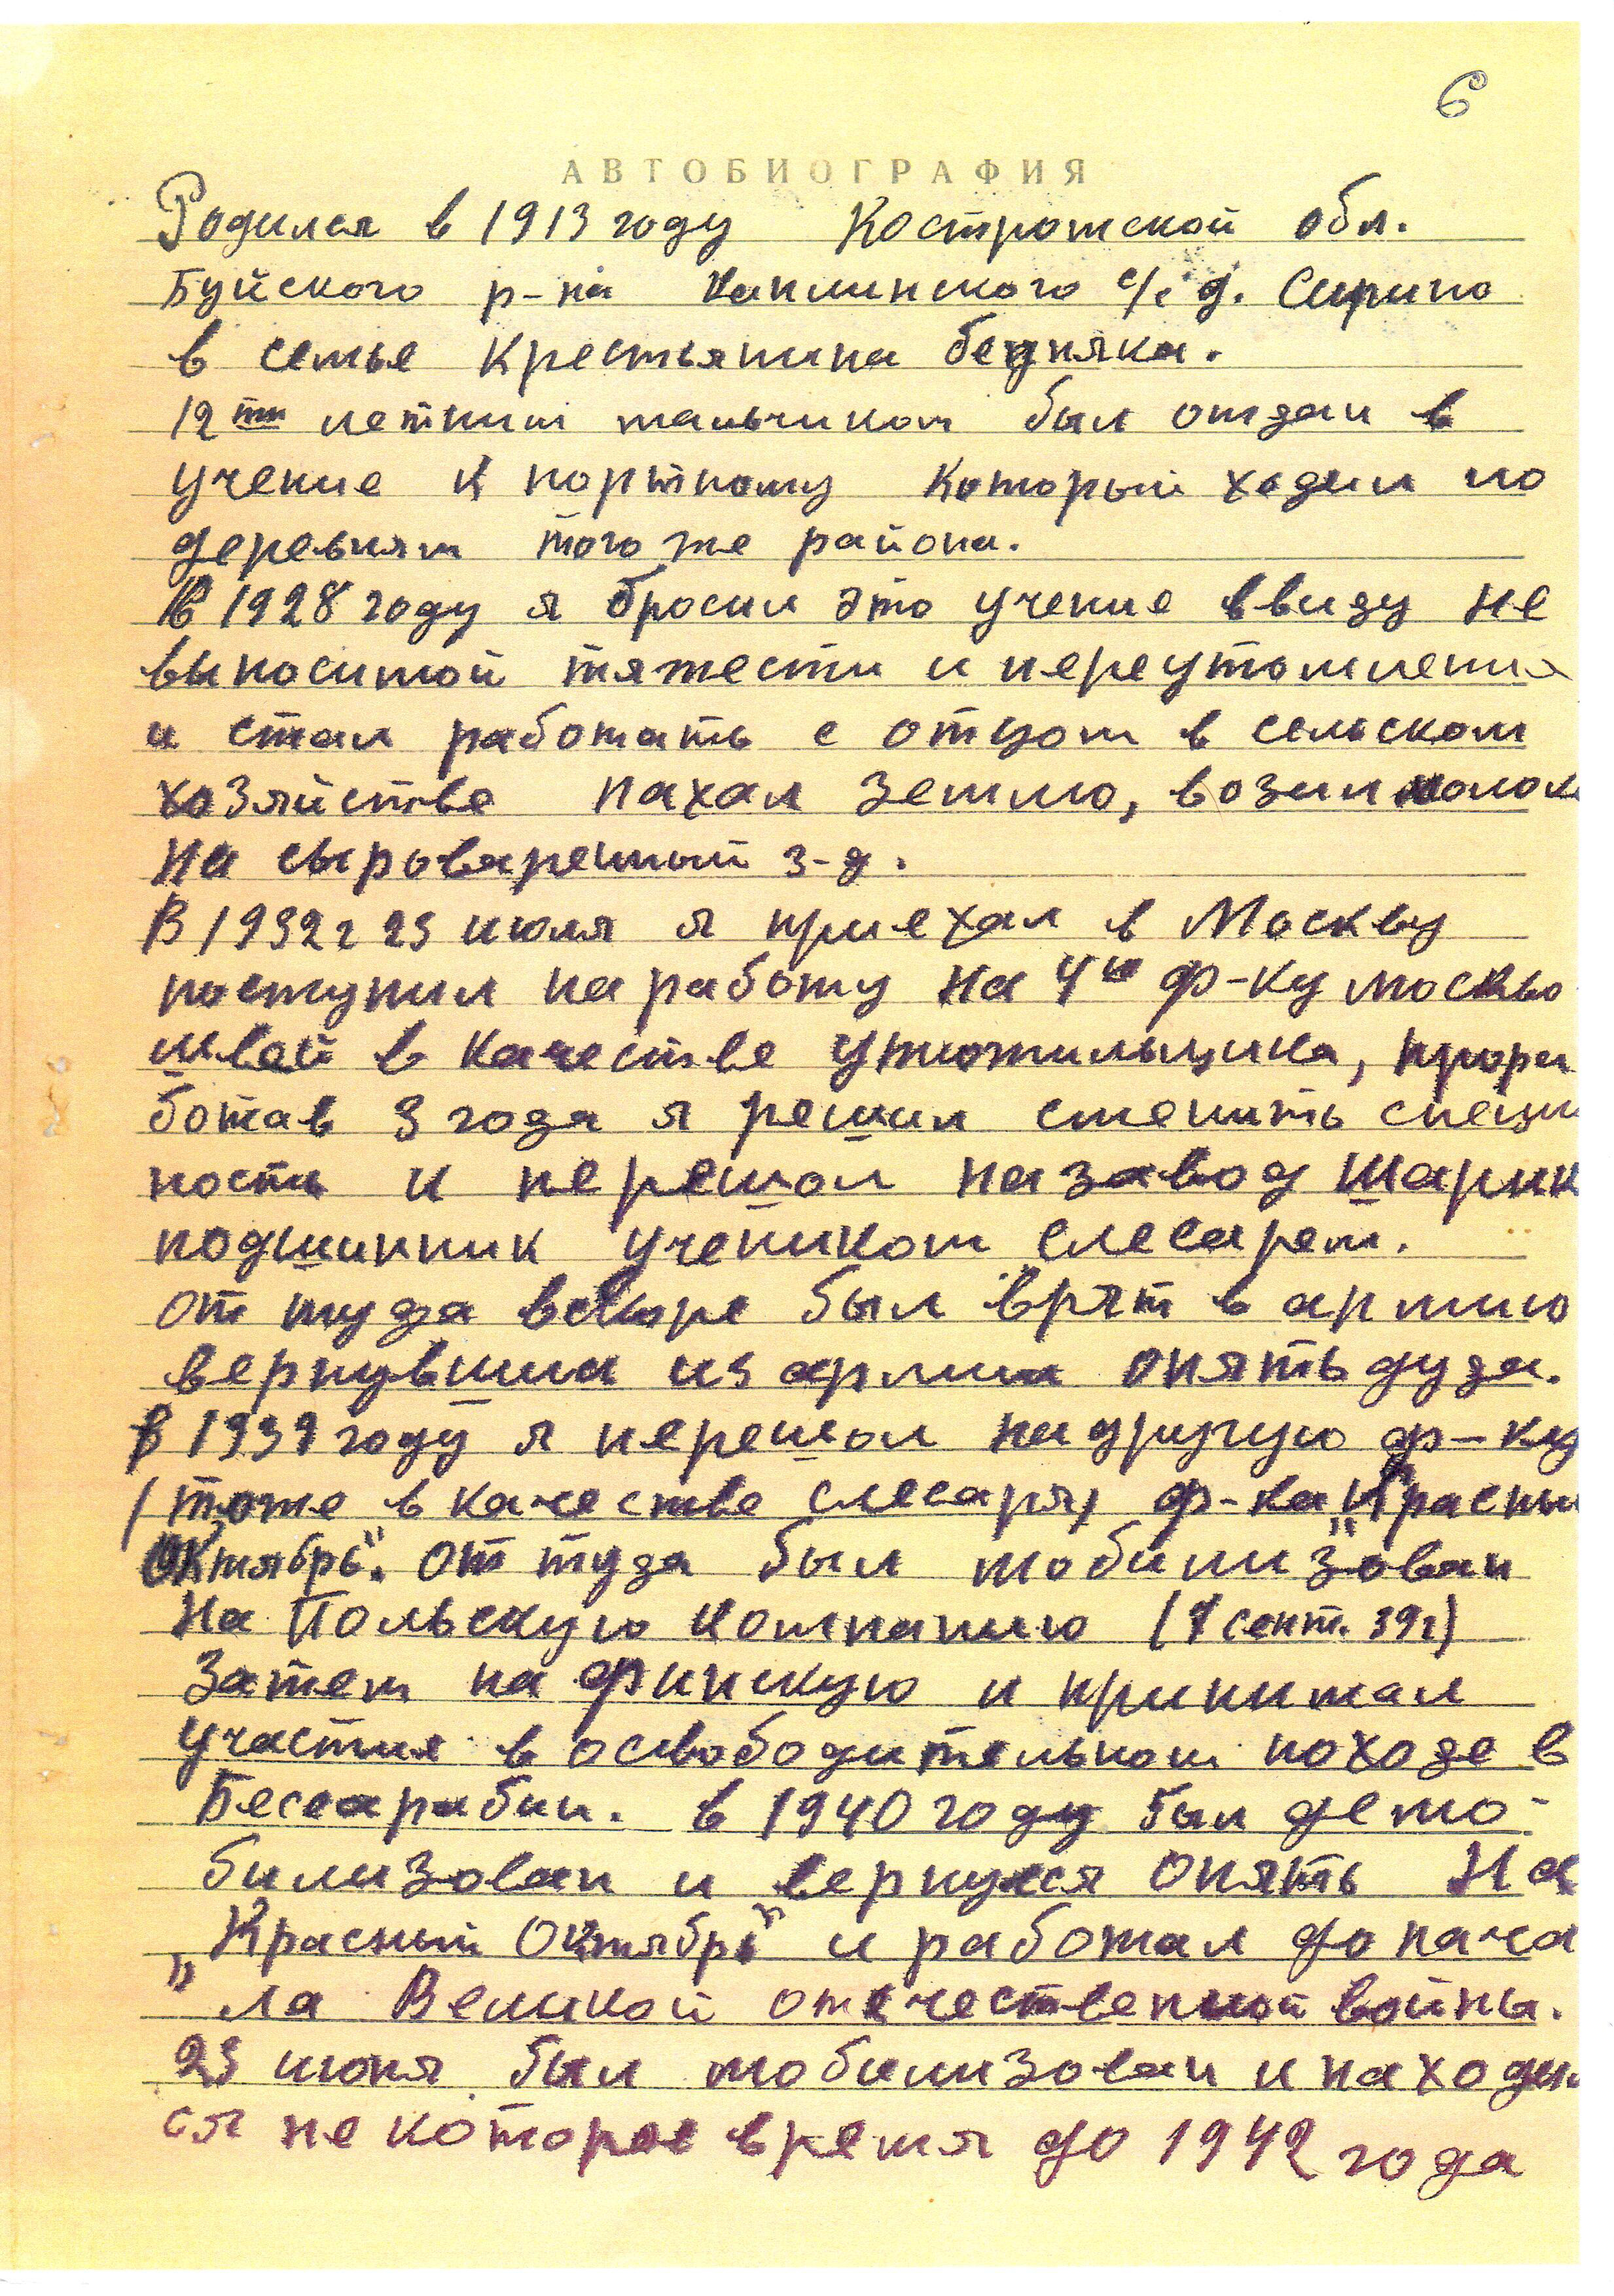 6
АВТОБИОГРАФИЯ
Родился в 1913 году Костромской обл.
Буйского р-на Каплинского с/с д. Сирино
в семье крестьянина бедняка.
12ти летним мальчиком был отдан в
учение к портному который ходил по
деревням того же района.
В 1928 году я бросил это учение ввиду не
выносимой тяжести и переутомления
и стал работать с отцом в сельском
хозяйстве пахал землю, возил молок
на сыроваренный з-д.
В 1932 г 23 июля я приехал в Москву
поступил на работу на 4ю ф-ку москво
швей в качестве утюжильщика, прора
ботав 3 года я решил сменить специ
ность и перешол на завод шарик
подшипник учеником слесарем.
от туда вскоре был взят в армию
вернувшиа из армии опять дуда.
в 1939 году я перешол на другую ф-ку
(тоже в качестве слесаря) ф-ка „Красны
Октябрь". от туда был мобилизован
на Польскую компанию (7 сент. 39г)
Затем на финскую и принимал
участия в освободительном походе в
Бессарабии. в 1940 году был демо-
билизован и вернулся опять на
„Красный Октябрь" и работал до нача
"ла Великой отечественной войны.
23 июня был мобилизован и находил
ся не которое время до 1942 года